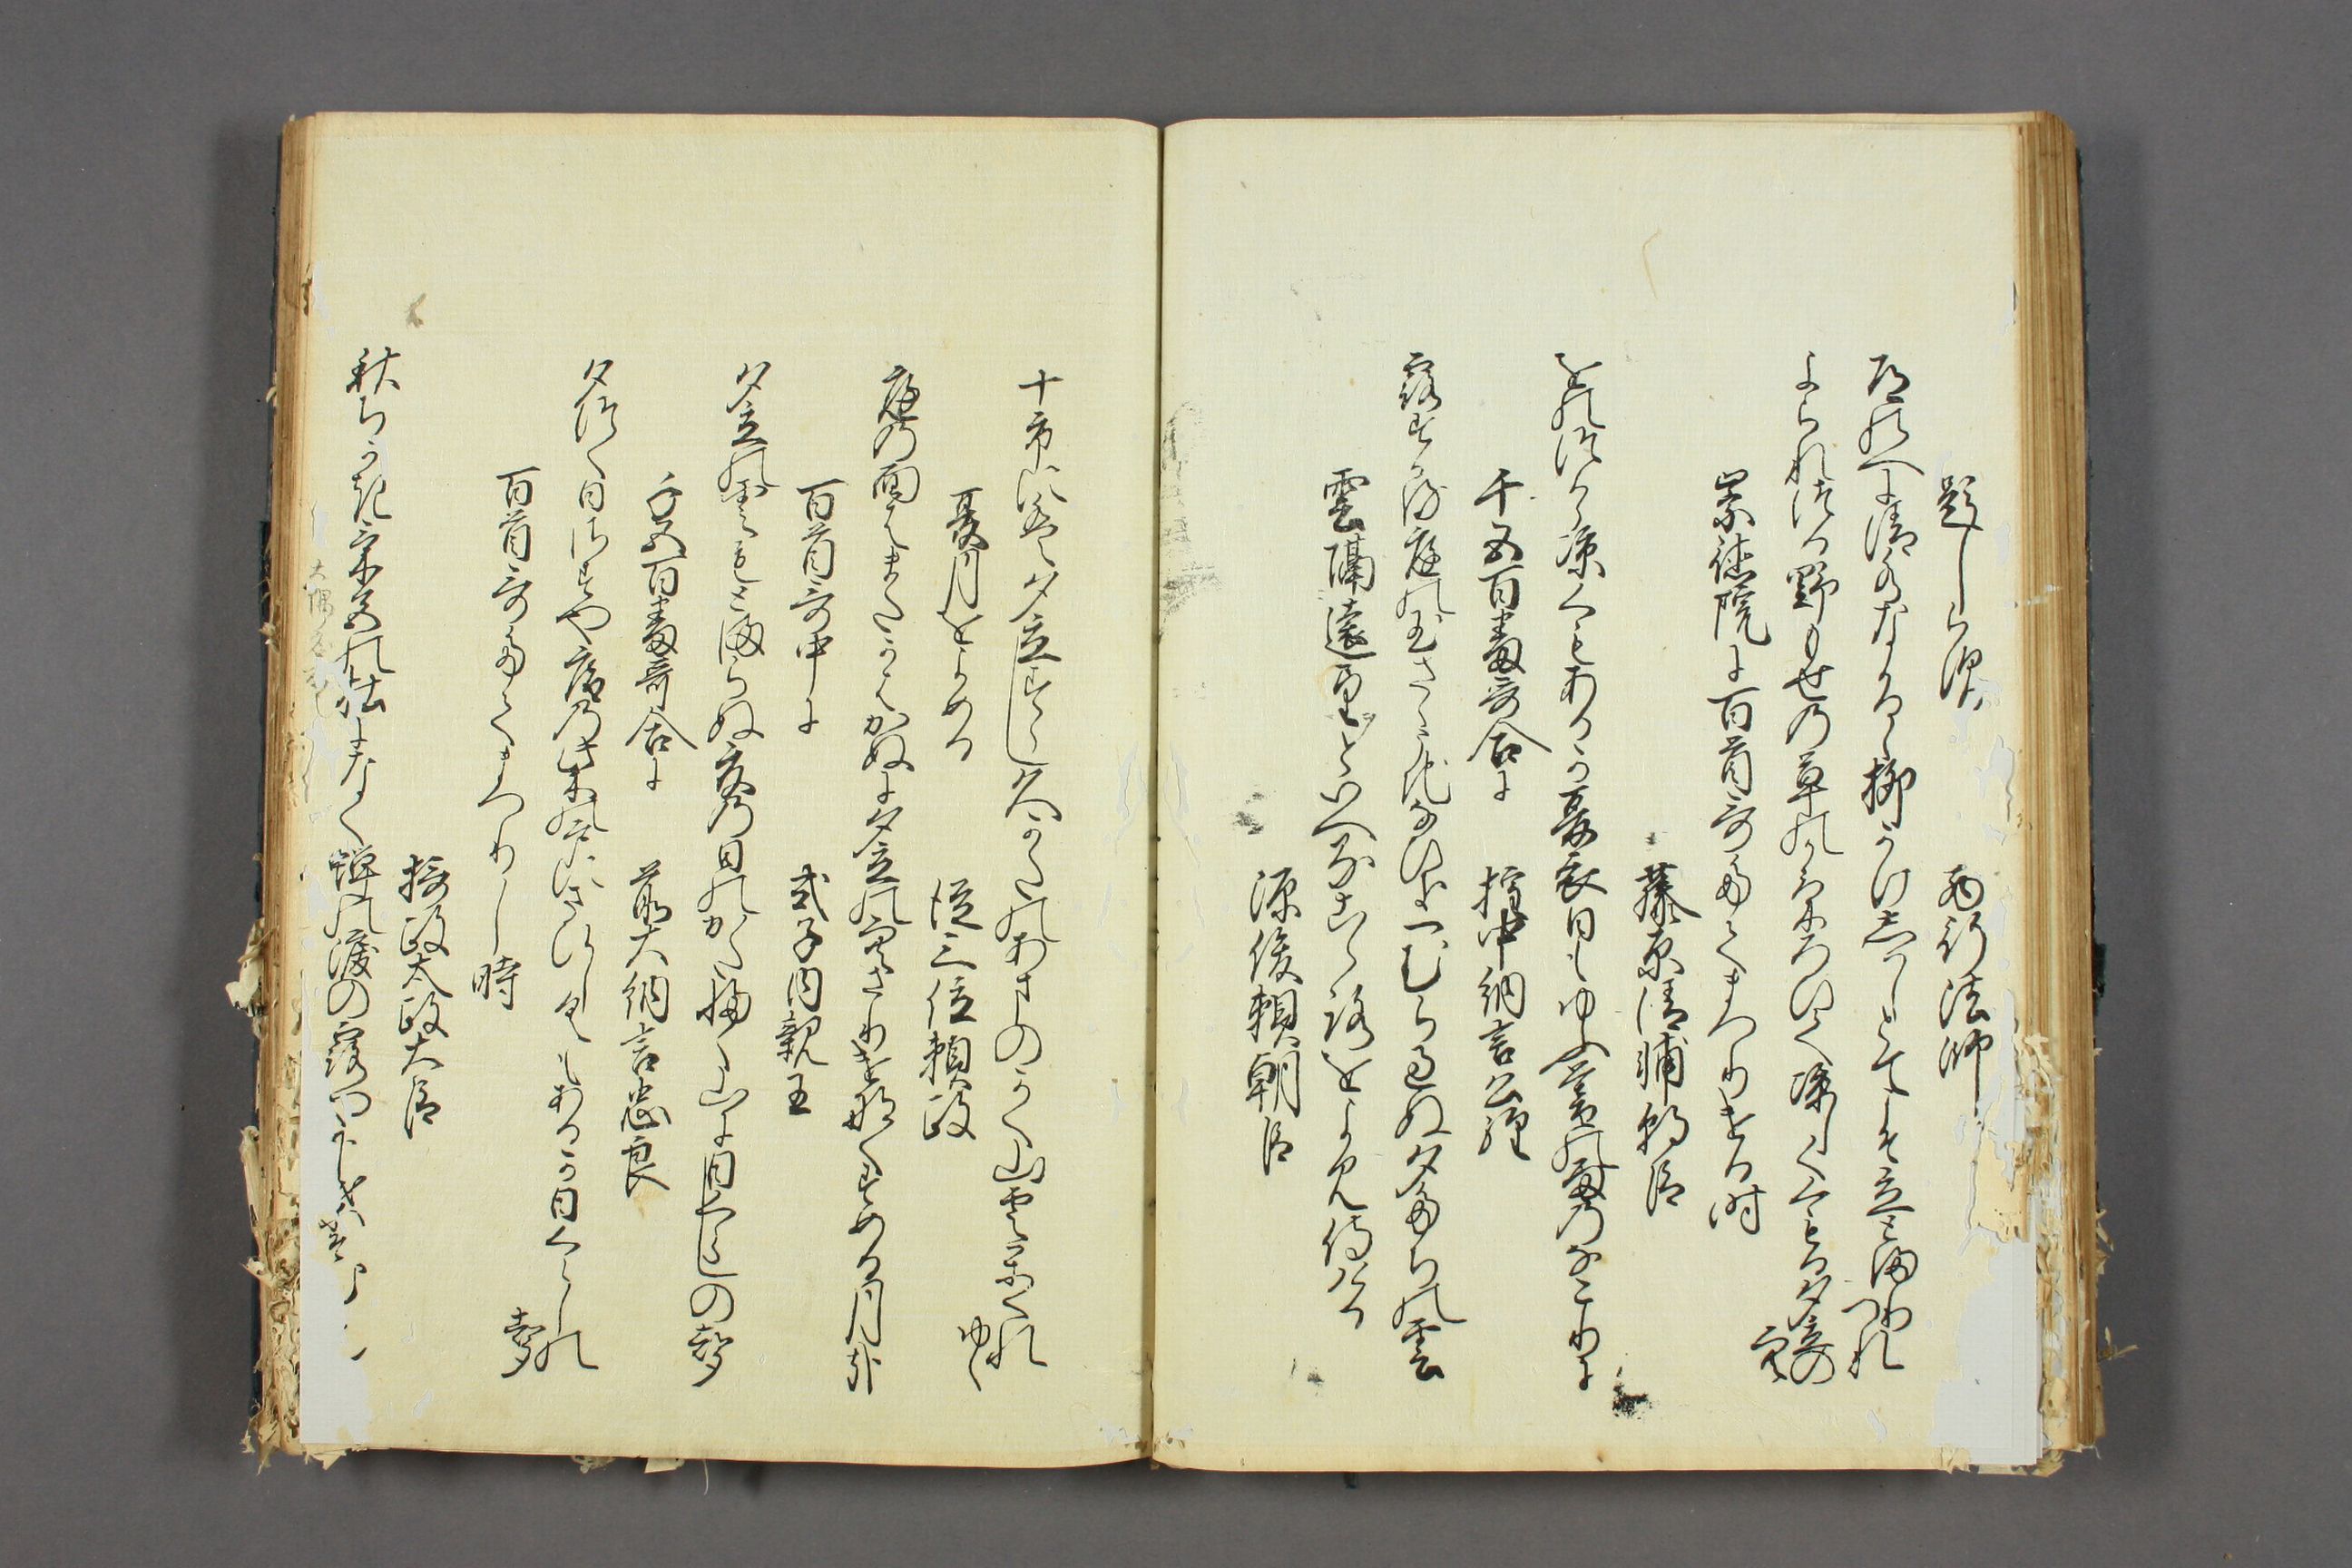 題しらす　西行法師
道のへに清水なかるゝ柳かけしはしとてこそ立とまりつれ
よられつる野もせの草のかけろひて涼しくくもる夕立の空
崇徳院に百首哥たてまつりける時
藤原清輔朝臣
をのつから涼しくもあるか夏衣日もゆふ暮の雨のなこりに
千五百番哥合に　権中納言公経
露すかる庭の玉さゝうちなひきひとむら過ぬ夕たちの雲
雲隔遠望といへる心をよみ侍ける
源俊頼朝臣
十市には夕立すらし久かたのあまのかく山雲かくれゆく
夏月をよめる　従三位頼政
庭の面はまたかはかぬに夕立の空さりけなくすめる月哉
百首哥中に　式子内親王
夕立の雲もとまらぬ夏の日のかたふく山に日くらしの声
千五百番哥合に　前大納言忠良
夕つく日さすや庵の柴の戸にさひしくもあるか日くらしの声
百首哥たてまつりし時
摂政太政大臣
秋ちかきけしきの杜になく蝉の涙の露や下葉